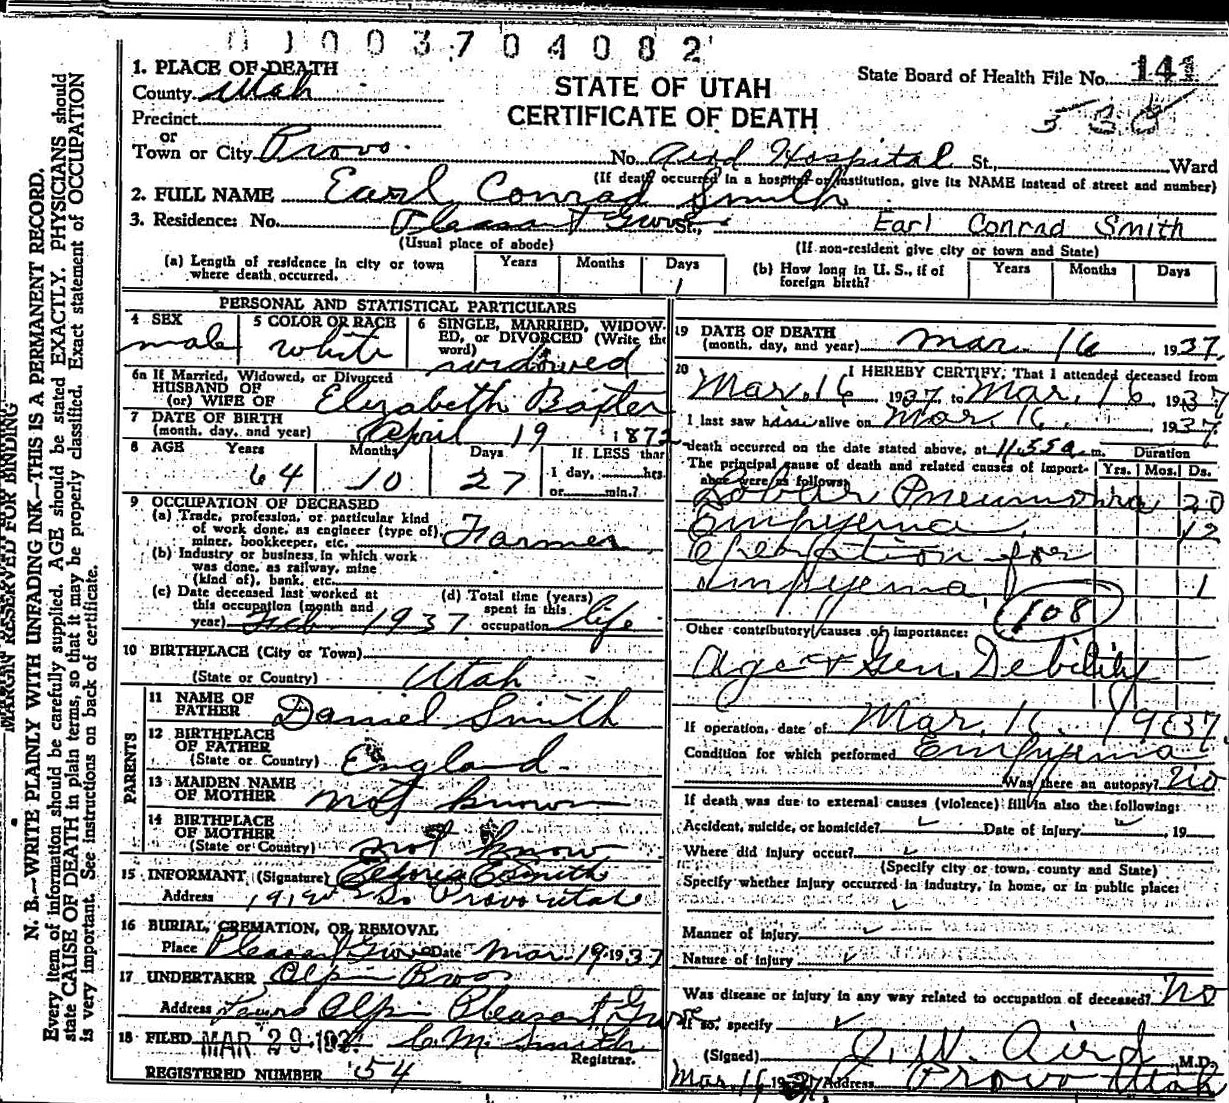 01003704082
1. PLACE OF DEATH
County Utah
Precinct
or
Town or City Provo.
STATE OF UTAH
CERTIFICATE OF DEATH
State Board of Health File No. 141
No. Aird Hospital St. Ward
(If death occurred in a hospital or institution, give its NAME instead of street and number)
2. FULL NAME Earl Conrad Smith
3. Residence: No. Pleasant Grove St., Earl Conrad Smith
(Usual place of abode) (If non-resident give city or town and State)
(a) Length of residence in city or town where death occurred. Years Months Days 1
(b) How long in U. S., if of foreign birth? Years Months Days
PERSONAL AND STATISTICAL PARTICULARS
4 SEX male
5 COLOR OR RACE white
6 SINGLE, MARRIED, WIDOWED, or DIVORCED (Write the word) widowed
6a If Married, Widowed, or Divorced
HUSBAND OF
(or) WIFE OF Elizabeth
7 DATE OF BIRTH
(month, day, and year) April 19 1872
8 AGE Years 64 Months 10 Days 27 If LESS than 1 day, hrs. or min.?
9 OCCUPATION OF DECEASED
(a) Trade, profession, or particular kind
of work done, as engineer (type of),
miner, bookkeeper, etc. Farmer
(b) Industry or business, in which work
was done, as railway, mine
(kind of), bank, etc.
(c) Date deceased last worked at
this occupation (month and
year) Feb 1937
(d) Total time (years)
spent in this
occupation life
10 BIRTHPLACE (City or Town)
(State or Country) Utah
PARENTS
11 NAME OF
FATHER Daniel Smith
12 BIRTHPLACE
OF FATHER
(State or Country) England
13 MAIDEN NAME
OF MOTHER not known
14 BIRTHPLACE
OF MOTHER
(State or Country) not know
15 INFORMANT (Signature) Smith
Address Provo utah
16 BURIAL, CREMATION, OR REMOVAL
Place Pleasant Grove Date Mar. 19 1937
17 UNDERTAKER Olpin Bros
Address Olpin Pleasant Grove
18 FILED MAR 29 1937 C. M. Smith
Registrar.
REGISTERED NUMBER 54
19 DATE OF DEATH
(month, day, and year) Mar. 16 1937
20 I HEREBY CERTIFY, That I attended deceased from
Mar. 16 1937, to Mar. 16 1937
I last saw him alive on Mar 16 1937
death occurred on the date stated above, at 11.55 a m.
The principal cause of death and related causes of importance were as follows:
Duration
Yrs. Mos. Ds.
Lobar Pneumonia 20
Empyema 12
Operation for
Empyema 1
108
Other contributory causes of importance:
Age & Gen. Debility
If operation, date of Mar. 16 1937
Condition for which performed Empyema
Was there an autopsy? No
If death was due to external causes (violence) fill in also the following:
Accident, suicide, or homicide? Date of injury , 19
Where did injury occur?
(Specify city or town, county and State)
Specify whether injury occurred in industry, in home, or in public place:
Manner of injury
Nature of injury
Was disease or injury in any way related to occupation of deceased? No
If so, specify
(Signed) J. W. Aird M.D.
Mar. 16 1937 Address Provo Utah
MARGIN RESERVED FOR BINDING
N. B.—WRITE PLAINLY WITH UNFADING INK—THIS IS A PERMANENT RECORD.
Every item of information should be carefully supplied. AGE should be stated EXACTLY. PHYSICIANS should
state CAUSE OF DEATH in plain terms, so that it may be properly classified. Exact statement of OCCUPATION
is very important. See instructions on back of certificate.